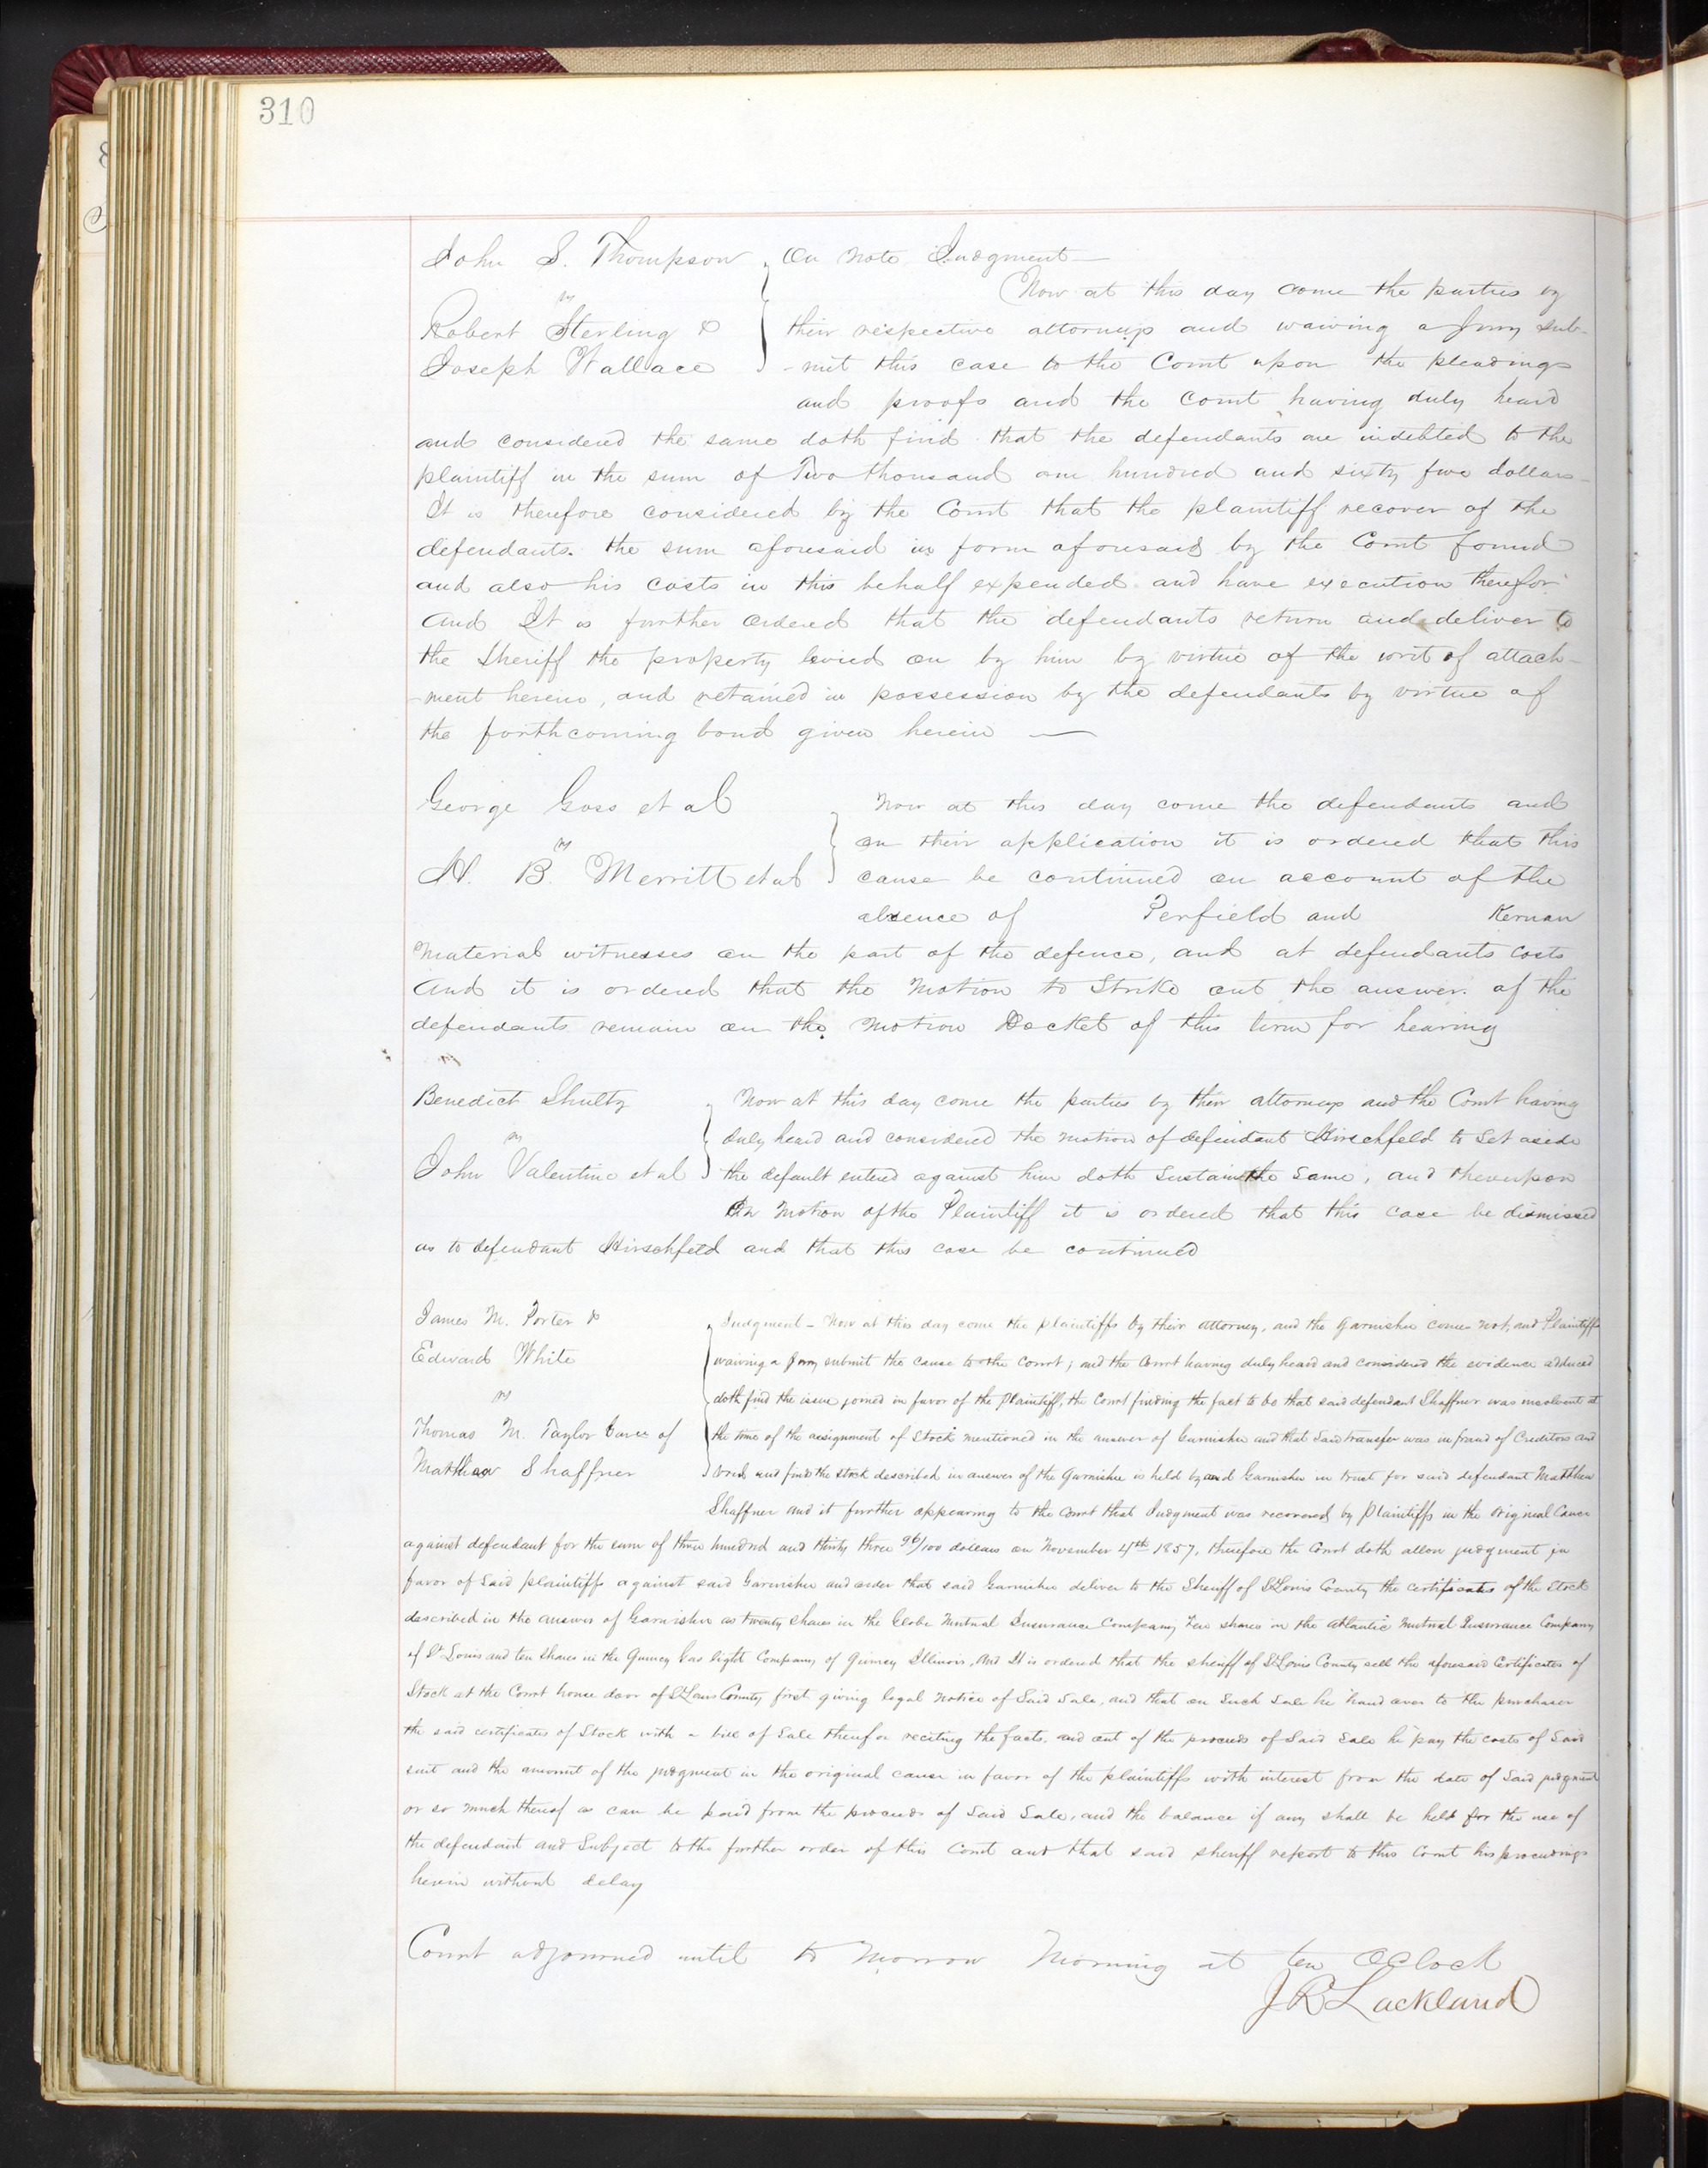 310
John S. Thompson } On Note Judgment
vs Now at this day come the parties by
Robert Sterling & } their respective attorneys and waiving a Jury sub-
Joseph Wallace } -mit this case to the Court upon the pleadings
and proofs and the Court having duly heard
and considered the same doth find that the defendants are indebted to the
plaintiff in the sum of Two thousand one hundred and sixty five dollars
It is therefore considered by the Court that the plaintiff recover of the
defendants. the sum aforesaid in form aforesaid by the Court found
and also his costs in this behalf expended and have execution therefor
And It is further ordered that the defendants return and deliver to
the Sheriff the property levied on by him by virtue of the writ of attach-
-ment herein, and retained in possession by the defendants by virtue of
the forthcoming bond given herein —
George Goss et al } Now at this day come the defendants and
vs } on their application it is ordered that this
H. B. Merritt et al } cause be continued on account of the
absence of Penfield and Kernan
Material witnesses on the part of the defence, and at defendants costs
And it is ordered that the Motion to Strike out the answer. of the
defendants remain on the Motion Docket of this term for hearing
Benedict Shultz } Now at this day come the parties by their attorneys and the Court having
vs } duly heard and considered the motion of defendant Hirschfeld to Set aside
John Valentine et al } the default entered against him doth Sustain the Same, and thereupon
On Motion of the Plaintiff it is ordered that this case be dismissed
as to defendant Hirschfeld and that this case be continued
James M. Porter & } Judgment – Now at this day come the plaintiffs by their attorney, and the Garnishee comes not, and Plaintiffs
Edward White } waiving a Jury submit the cause to the Court; and the Court having duly heard and considered the evidence adduced
vs } doth find the issue joined in favor of the Plaintiff, the Court finding the fact to be that said defendant Shaffner was insolvent at
Thomas M. Taylor Garn of } the time of the assignment of Stock mentioned in the answer of Garnishee and that Said transfer was in fraud of Creditors and
Matthew Shaffner } void, and finds the stock described in answer of the Garnishee is held by said Garnishee in trust for said defendant Matthew
Shaffner and it further appearing to the Court that Judgment was recovered by Plaintiffs in the original Cause
against defendant for the sum of three hundred and thirty three 96/100 dollars on November 4th 1857, therefore the Court doth allow judgment in
favor of Said plaintiffs against said Garnishee and order that said Garnishee deliver to the Sheriff of St Louis County the certificates of the Stock
described in the answer of Garnishee as twenty Shares in the Globe Mutual Insurance Company Ten shares in the Atlantic Mutual Insurance Company
of St Louis and ten Shares in the Quincy Gas light Company of Quincy Illinois, And It is ordered that the sheriff of St Louis County sell the aforesaid Certificates of
Stock at the Court house door of St Louis County first giving legal notice of Said Sale, and that on Such Sale he hand over to the purchaser
the said certificates of Stock with a bill of Sale therefor reciting the facts, and out of the proceeds of Said Sale he pay the costs of Said
suit and the amount of the judgment in the original cause in favor of the plaintiffs with interest from the date of Said judgment
or so much thereof as can be paid from the proceeds of Said Sale, and the balance if any shall be held for the use of
the defendant and Subject to the further order of this Court and that said sheriff report to this Court his proceedings
herein without delay
Court adjourned until to Morrow Morning at ten OClock
J R Lackland